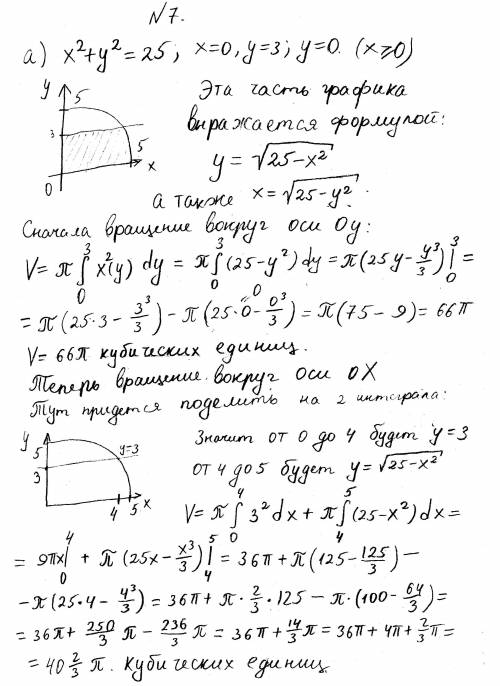 №7.
а) x²+y²=25; x=0, y=3; y=0. (x⩾0)
y 5
3
5
0 x
Эта часть графика
выражается формулой:
y = √(25-x²)
а также x = √(25-y²).
Сначала вращение вокруг оси Оу:
V = π∫₀³ x²(y) dy = π∫₀³ (25-y²) dy = π(25y - y³/3)|₀³ =
= π(25·3 - 3³/3) - π(25·0 - 0³/3) = π(75 - 9) = 66π
V = 66π кубических единиц.
Теперь вращение вокруг оси ОХ
Тут придется поделить на 2 интеграла:
y
5 y=3
3
4 5 x
Значит от 0 до 4 будет y=3
от 4 до 5 будет y = √(25-x²)
V = π∫₀⁴ 3² dx + π∫₄⁵ (25-x²) dx =
= 9πx|₀⁴ + π(25x - x³/3)|₄⁵ = 36π + π(125 - 125/3) -
- π(25·4 - 4³/3) = 36π + π·2/3·125 - π·(100 - 64/3) =
= 36π + 250/3 π - 236/3 π = 36π + 14/3 π = 36π + 4π + 2/3 π =
= 40 2/3 π. кубических единиц